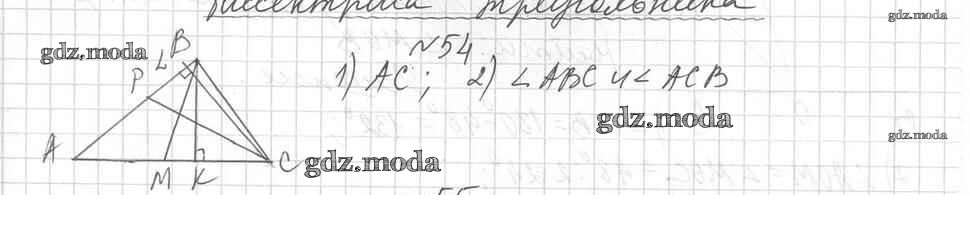 биссектриса треугольника
gdz.moda
№54
gdz.moda
B
L
P
1) AC; 2) <ABC и <ACB
gdz.moda
gdz.moda
A
C
gdz.moda
M K
55